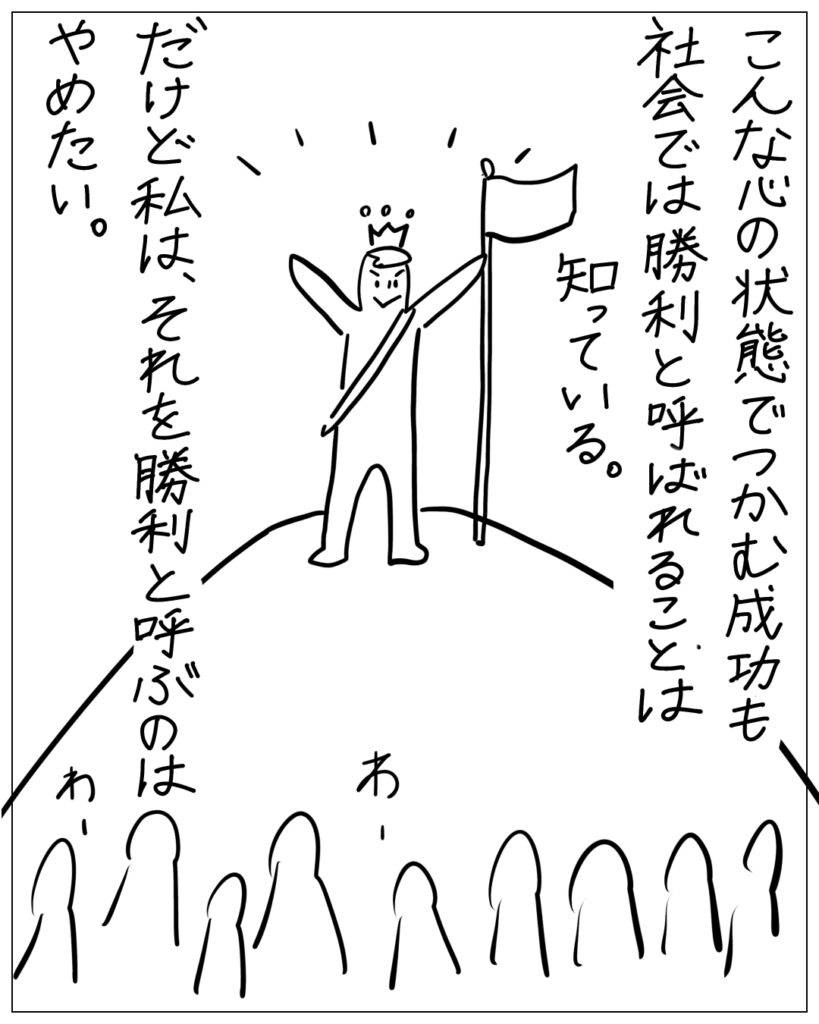 こんな心の状態でつかむ成功も
社会では勝利と呼ばれることは
知っている。
だけど私は、それを勝利と呼ぶのは
やめたい。
わー
わー